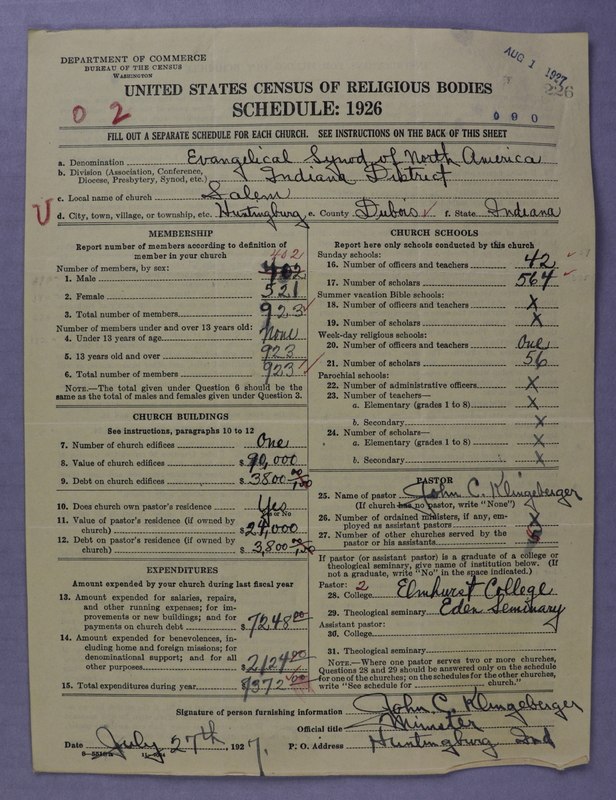 DEPARTMENT OF COMMERCE
BUREAU OF THE CENSUS
WASHINGTON
AUG 1 1927
226
UNITED STATES CENSUS OF RELIGIOUS BODIES
SCHEDULE: 1926
0 2
090
FILL OUT A SEPARATE SCHEDULE FOR EACH CHURCH. SEE INSTRUCTIONS ON THE BACK OF THIS SHEET
a. Denomination Evangelical Synod of North America
b. Division (Association, Conference, Diocese, Presbytery, Synod, etc.) Indiana District
c. Local name of church Salem
d. City, town, village, or township, etc. Huntingburg e. County Dubois f. State Indiana
MEMBERSHIP
Report number of members according to definition of
member in your church
402
Number of members, by sex:
1. Male 402
2. Female 521
3. Total number of members 923
Number of members under and over 13 years old:
4. Under 13 years of age None
5. 13 years old and over 923
6. Total number of members 923
NOTE.—The total given under Question 6 should be the
same as the total of males and females given under Question 3.
CHURCH BUILDINGS
See instructions, paragraphs 10 to 12
7. Number of church edifices One
8. Value of church edifices $ 90,000
9. Debt on church edifices $ 3800
10. Does church own pastor's residence? Yes
Yes or No
11. Value of pastor's residence (if owned by
church) $
12. Debt on pastor's residence (if owned by
church) $ 3,800
EXPENDITURES
Amount expended by your church during last fiscal year
13. Amount expended for salaries, repairs,
and other running expenses; for im-
provements or new buildings; and for
payments on church debt $ 7248 00
14. Amount expended for benevolences, in-
cluding home and foreign missions; for
denominational support; and for all
other purposes $ 2124 00
15. Total expenditures during year $ 9372 00
CHURCH SCHOOLS
Report here only schools conducted by this church
Sunday schools:
16. Number of officers and teachers 42
17. Number of scholars 564
Summer vacation Bible schools:
18. Number of officers and teachers X
19. Number of scholars X
Week-day religious schools:
20. Number of officers and teachers One
21. Number of scholars 56
Parochial schools:
22. Number of administrative officers X
23. Number of teachers—
a. Elementary (grades 1 to 8) X
b. Secondary X
24. Number of scholars—
a. Elementary (grades 1 to 8) X
b. Secondary X
PASTOR
25. Name of pastor John C. Klingeberger
(If church has no pastor, write "None")
26. Number of ordained ministers, if any, em-
ployed as assistant pastors X
27. Number of other churches served by the
pastor or his assistants
If pastor (or assistant pastor) is a graduate of a college or
theological seminary, give name of institution below. (If
not a graduate, write "No" in the space indicated.)
Pastor: 2
28. College Elmhurst College
29. Theological seminary Eden Seminary
Assistant pastor:
30. College
31. Theological seminary
NOTE.—Where one pastor serves two or more churches,
Questions 28 and 29 should be answered only on the schedule
for one of the churches; on the schedules for the other churches,
write "See schedule for church."
Signature of person furnishing information John C. Klingeberger
Official title Minister
Date July 27th, 1927. P. O. Address Huntingburg Ind